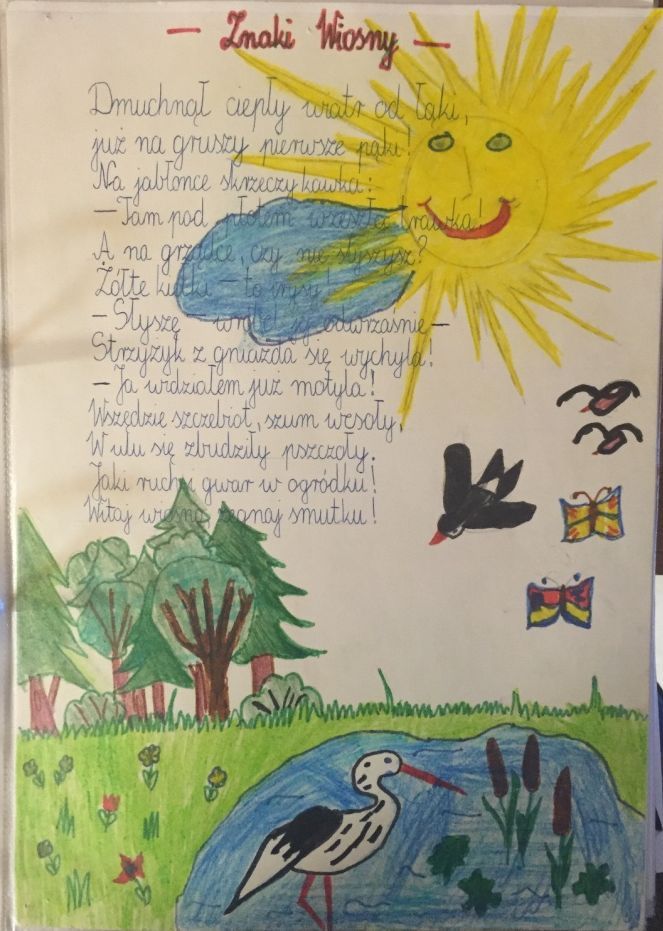 — Znaki Wiosny —
Dmuchnął ciepły wiatr od łąki,
już na gruszy pierwsze pąki!
Na jabłonce skrzeczy kawka:
— Tam pod płotem wzeszła trawka!
A na grządce, czy nie słyszysz?
Żółte kulki – to irysy!
– Słyszę – wróbel jej odwrzaśnie –
Strzyżyk z gniazda się wychyla!
– Ja widziałem już motyla!
Wszędzie szczebiot, szum wesoły,
W ulu się zbudziły pszczoły.
Jaki ruch i gwar w ogródku!
Witaj wiosno, żegnaj smutku!